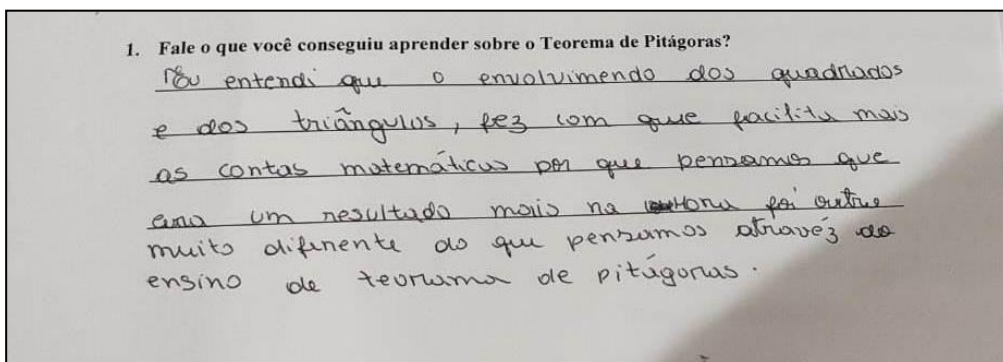 1. Fale o que você conseguiu aprender sobre o Teorema de Pitágoras?
Eu entendi que o envolvimendo dos quadrados
e dos triângulos, fez com que facilita mais
as contas matemáticas por que pensamos que
era um resultado mais na hora foi outro
muito diferente do que pensamos atravéz do
ensino de teorama de pitágoras.